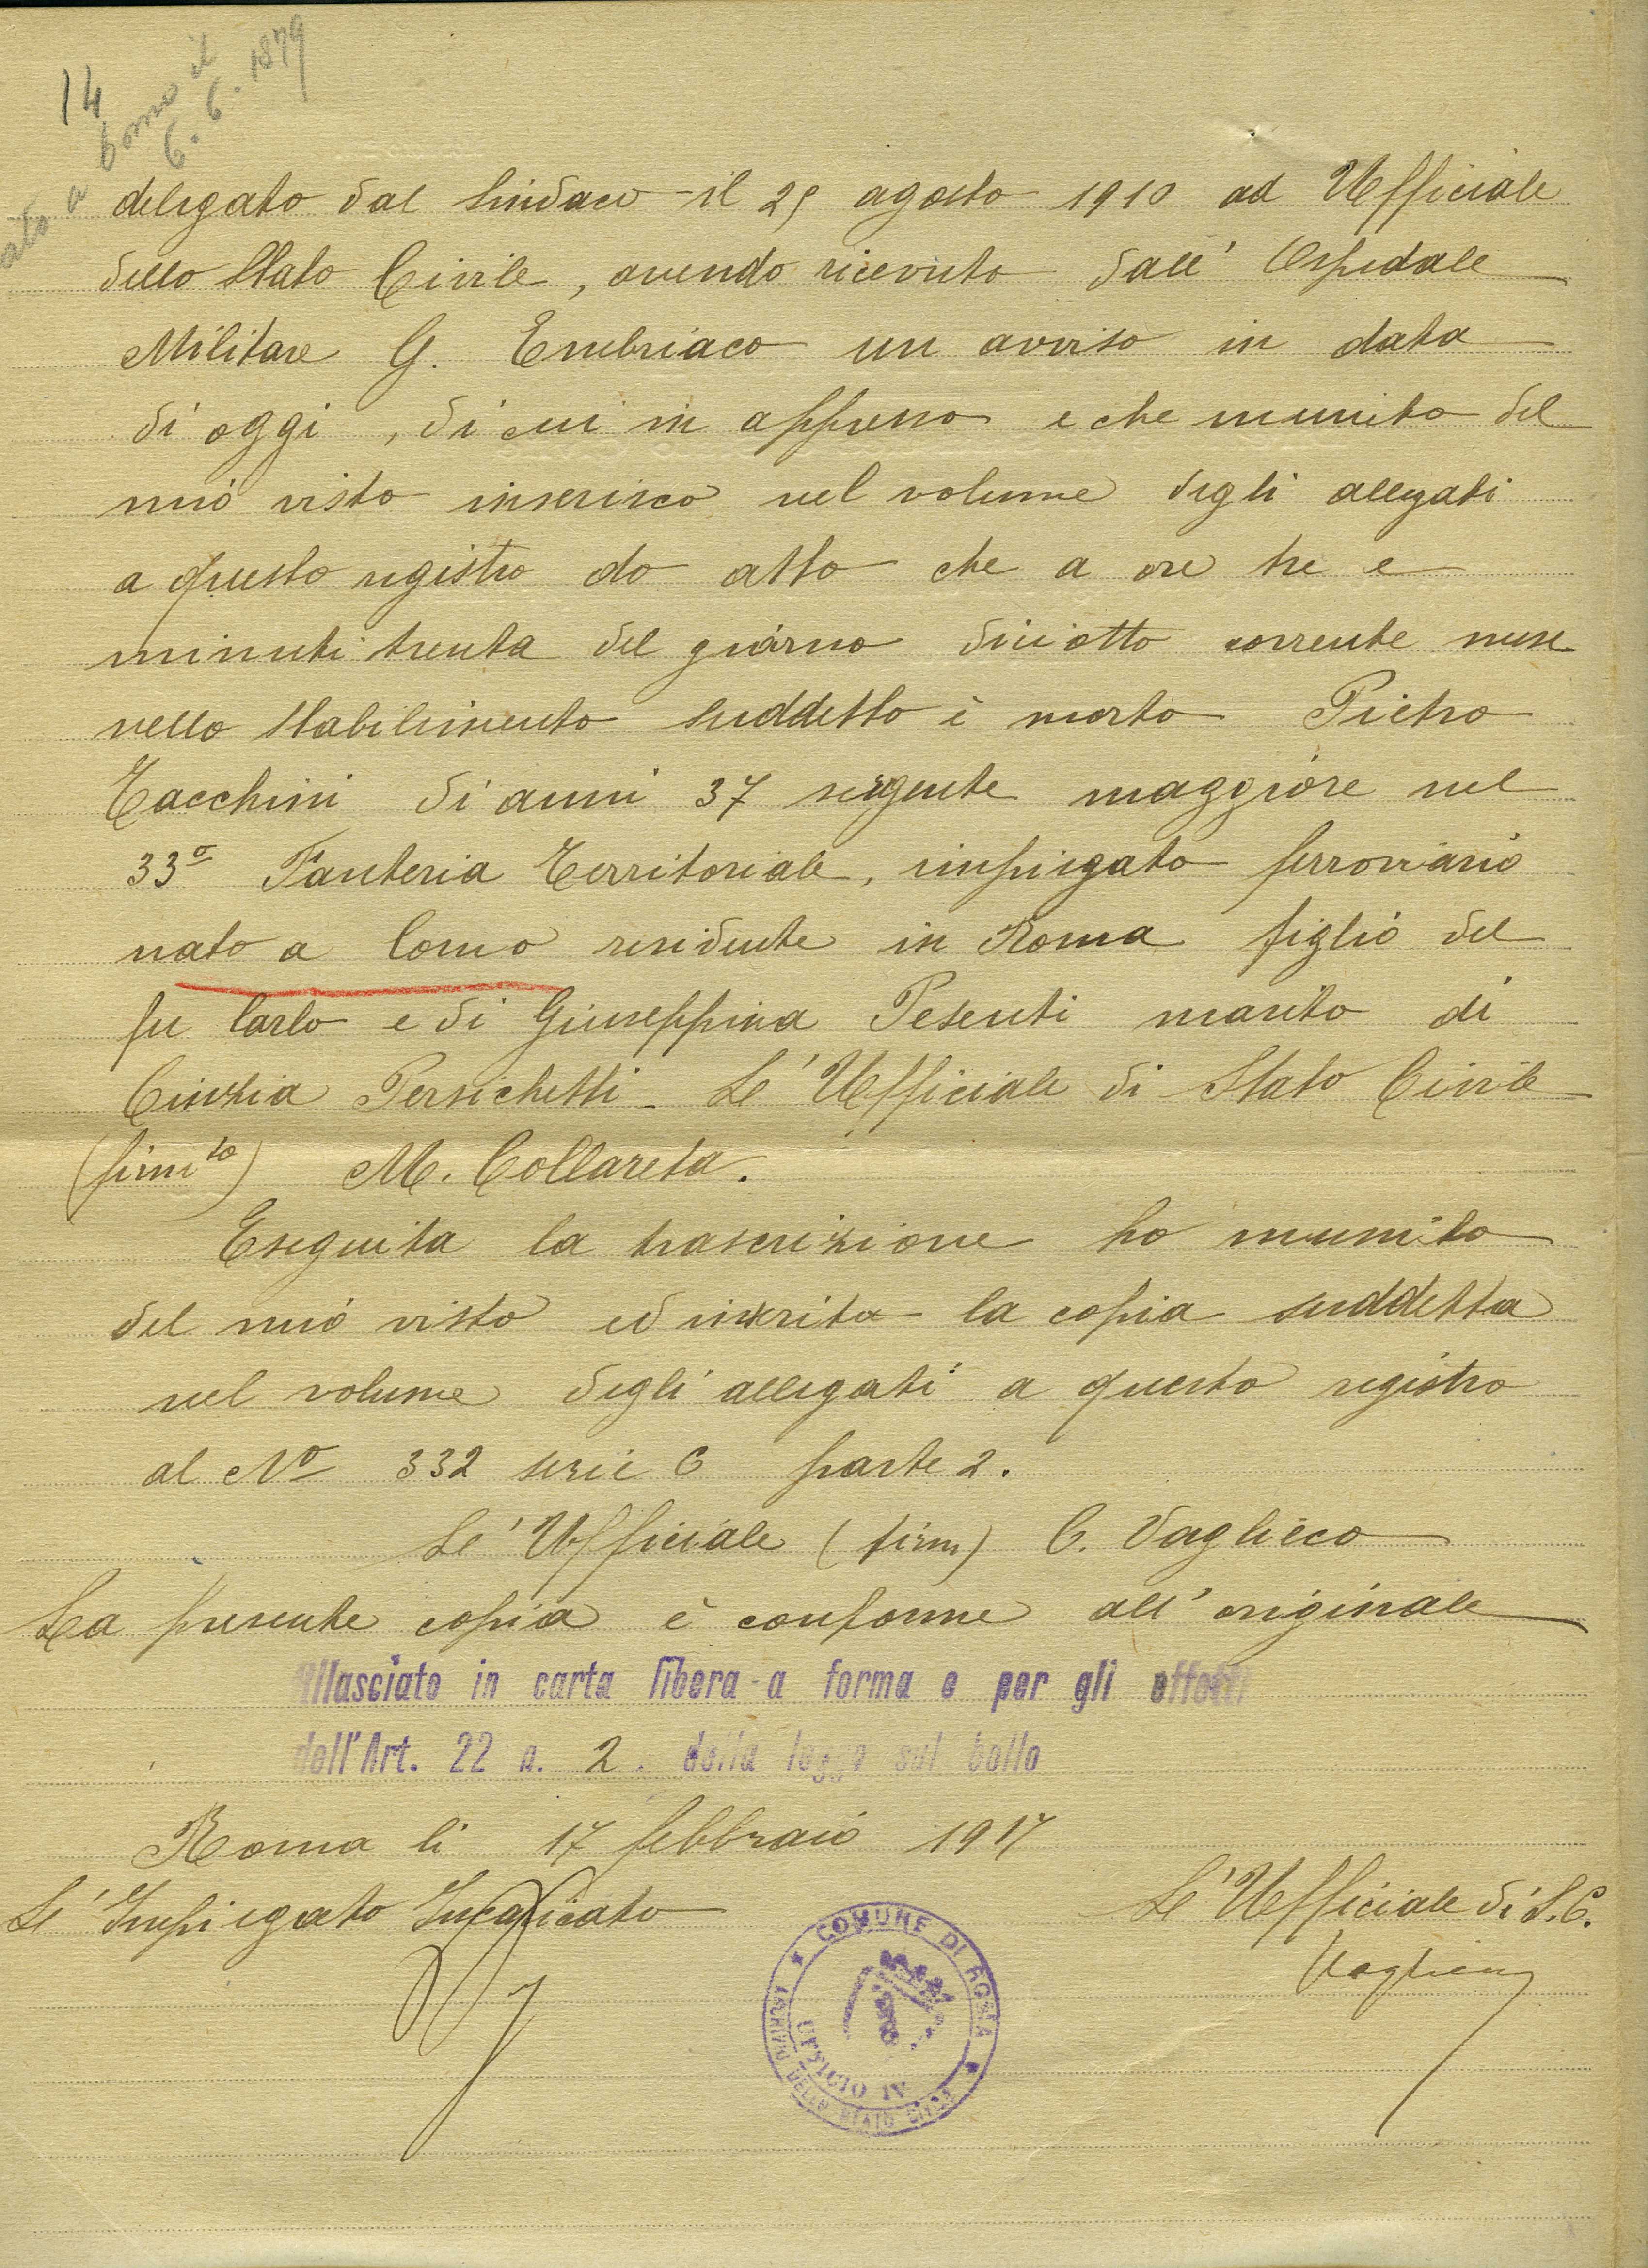 14
nato a Como il
6.6.1879
delegato dal Sindaco il 29 agosto 1910 ad Ufficiale
dello Stato Civile, avendo ricevuto dall' Ospedale
Militare G. Embriaco un avviso in data
di oggi, di cui in appresso e che munito del
mio visto inserisco nel volume degli allegati
a questo registro do atto che a ore tre e
minuti trenta del giorno diciotto corrente mese
nello stabilimento suddetto è morto Pietro
Tacchini di anni 37 sergente maggiore nel
33º Fanteria Territoriale, impiegato ferroviario
nato a Como residente in Roma figlio del
fu Carlo e di Giuseppina Pesenti marito di
Cinzia Persichetti - L'Ufficiale di Stato Civile
(firmto) M. Collareta.
Eseguita la trascrizione ho munito
del mio visto ed inserita la copia suddetta
nel volume degli allegati a questo registro
al Nº 332 serie C parte 2.
L'Ufficiale (firm) C. Vaglieco
La presente copia è conforme all'originale
Rilasciato in carta libera a forma e per gli effetti
dell'Art. 22 n. 2. della legge sul bollo
Roma li 17 febbraio 1917
L'Impiegato Incaricato L'Ufficiale di S.C.
COMUNE DI ROMA
ARCHIVIO DELLO STATO CIVILE
UFFICIO IV